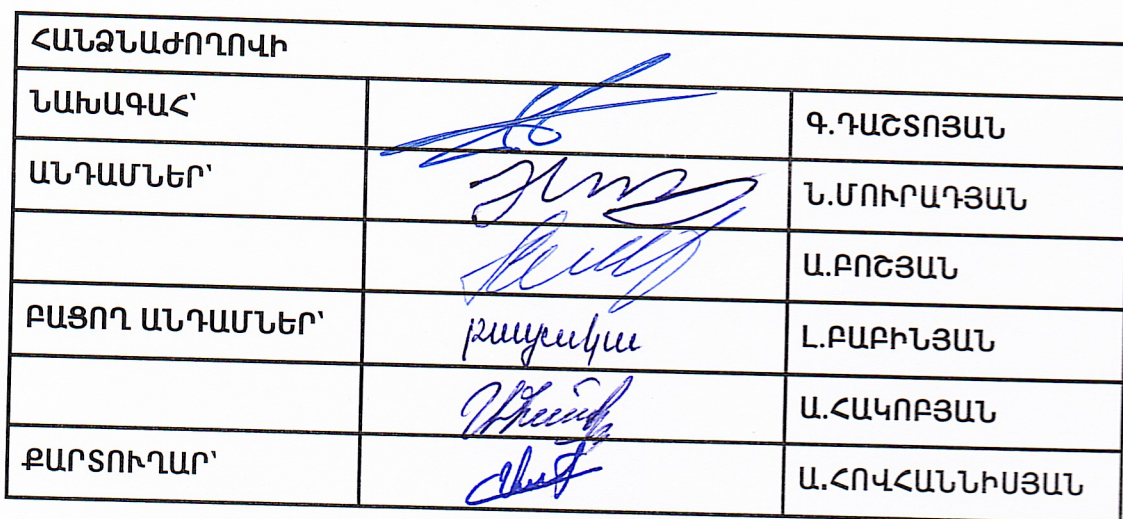 ՀԱՆՁՆԱԺՈՂՈՎԻ
ՆԱԽԱԳԱՀ՝ Գ.ԴԱՇՏՈՅԱՆ
ԱՆԴԱՄՆԵՐ՝ Ն.ՄՈՒՐԱԴՅԱՆ
Ա.ԲՈՇՅԱՆ
ԲԱՑՈՂ ԱՆԴԱՄՆԵՐ՝ բացակա Լ.ԲԱԲԻՆՅԱՆ
Ա.ՀԱԿՈԲՅԱՆ
ՔԱՐՏՈՒՂԱՐ՝ Ա.ՀՈՎՀԱՆՆԻՍՅԱՆ